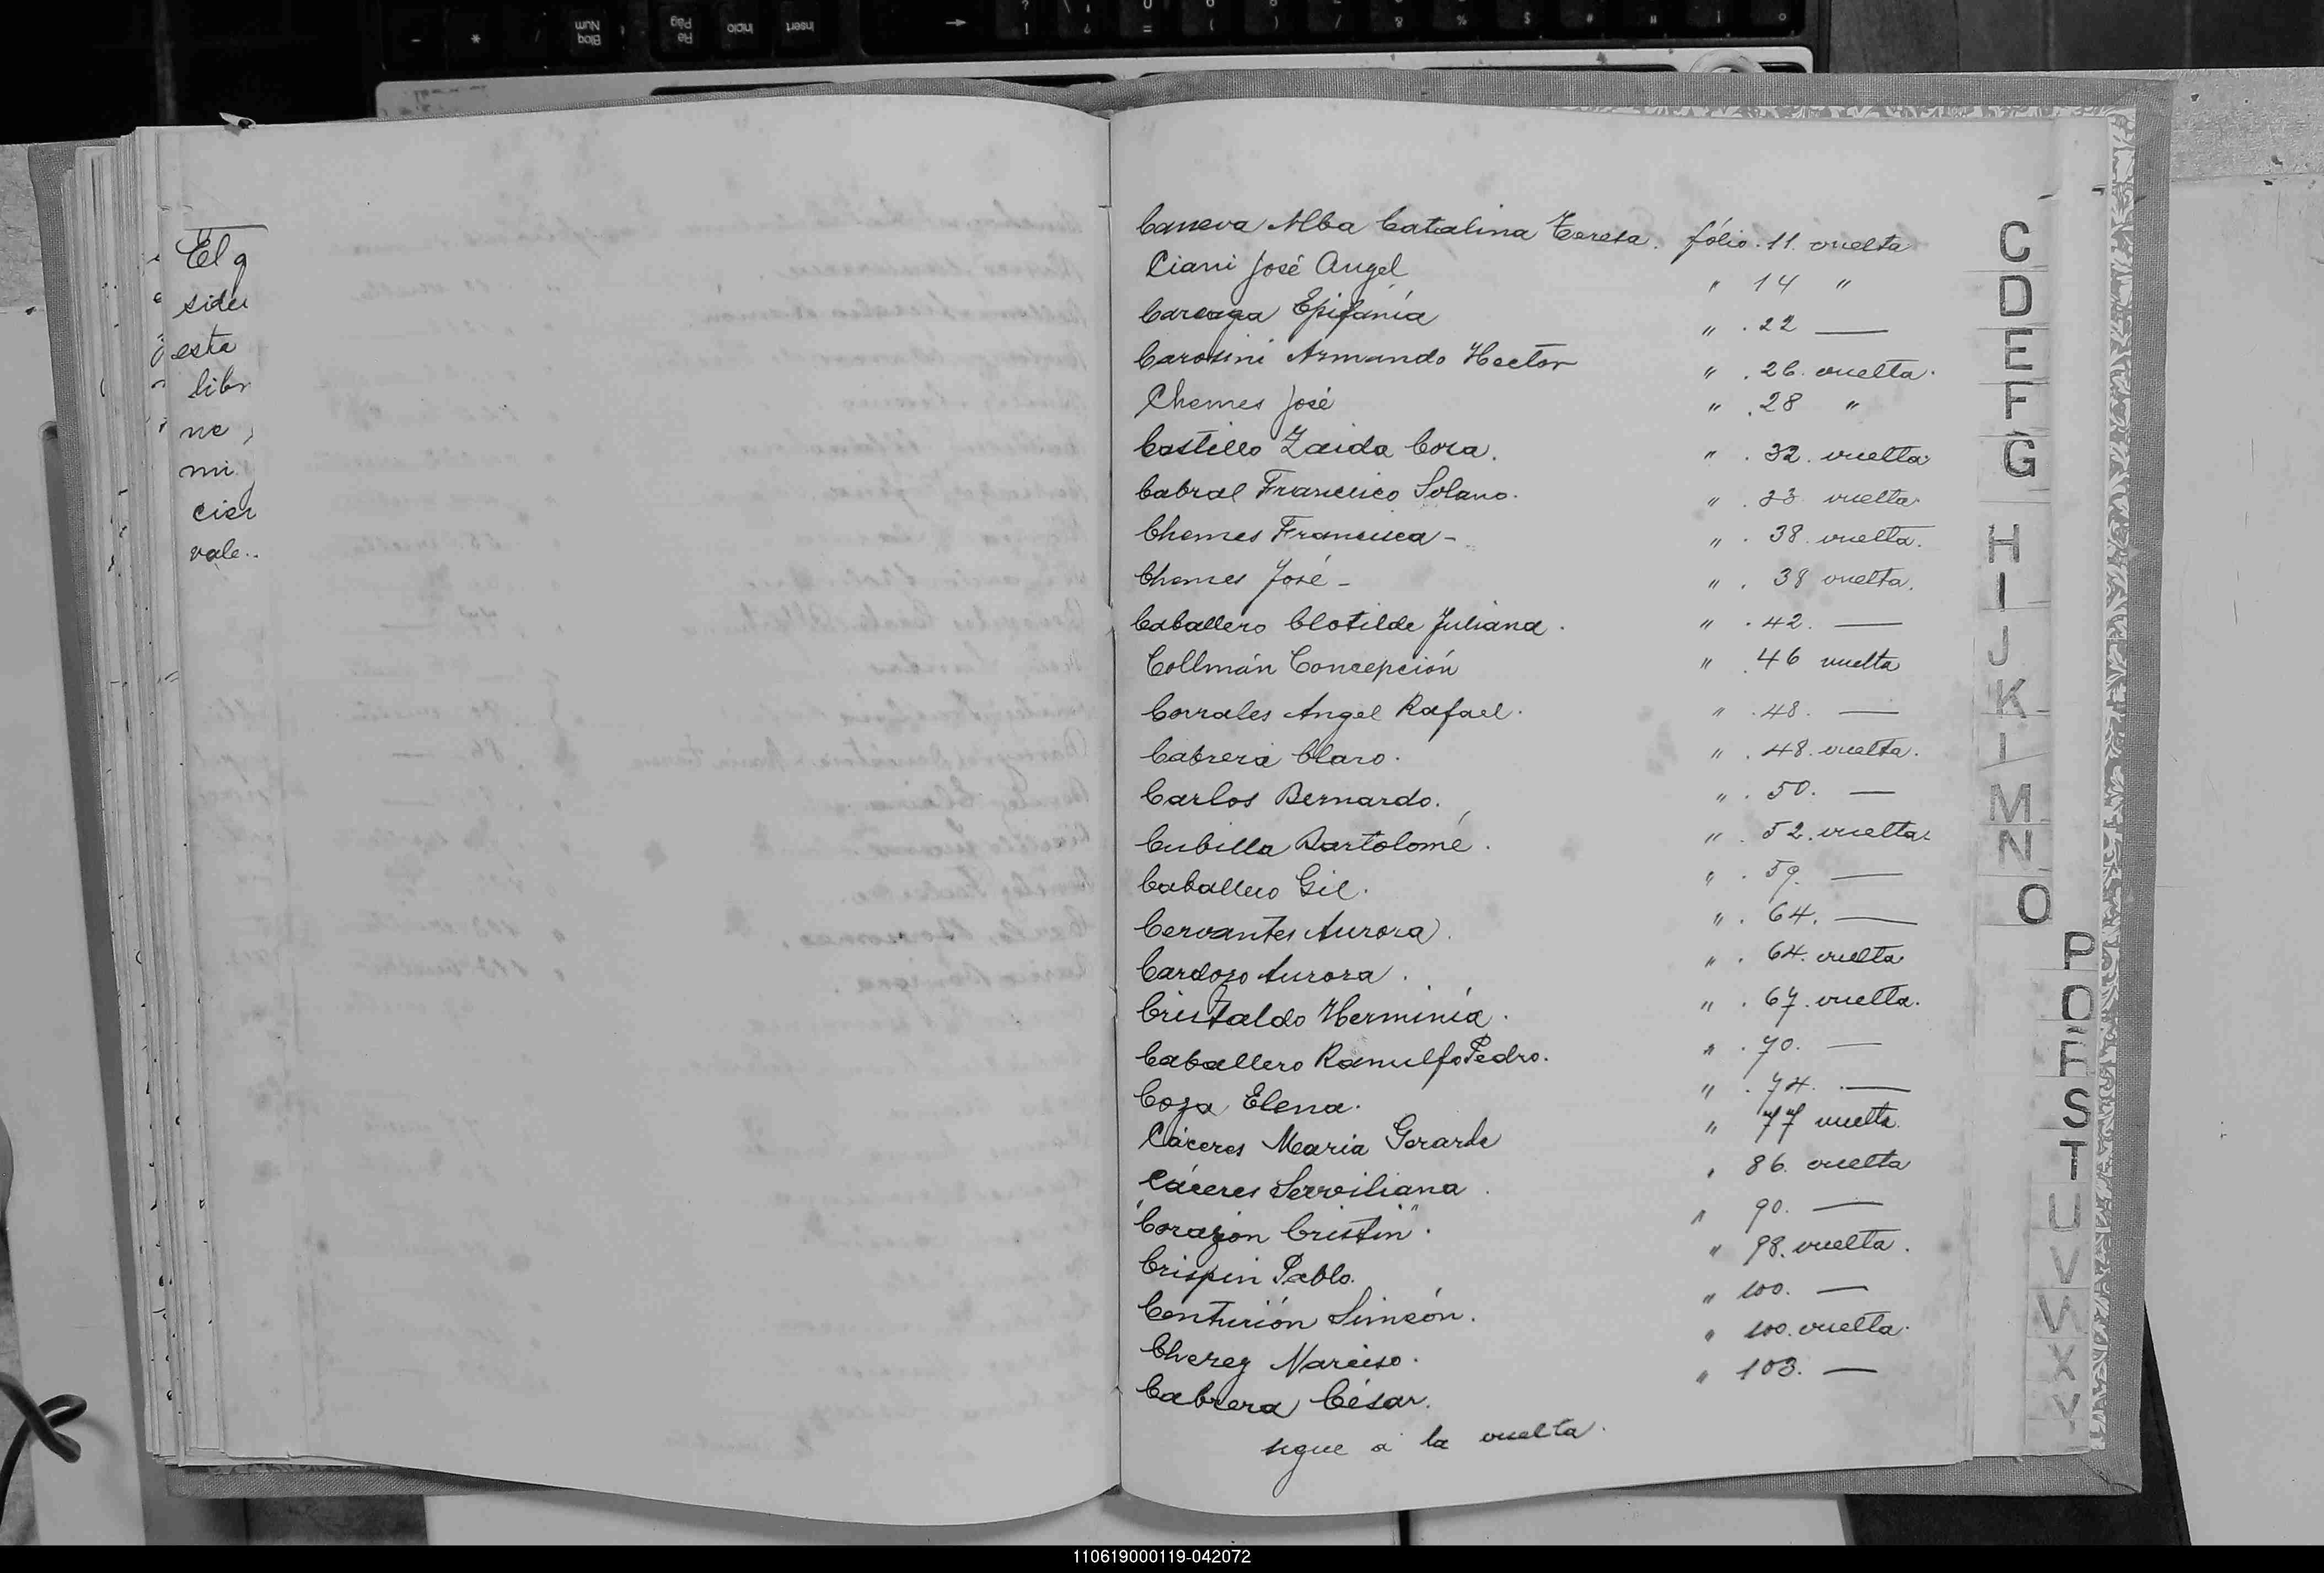 El q
side
esta
libr
ne
mi
cier
vale..
Caneva Alba Catalina Teresa. fólio. 11. vuelta
Ciani José Angel " 14 "
Careaga Epifánía " . 22 —
Carosini Armando Hector " . 26. vuelta.
Chemes José " . 28 "
Castillo Zaida Cora. " . 32. vuelta
Cabral Francisco Solano. " . 33 vuelta
Chemes Francisca - " . 38. vuelta.
Chemes José - " . 38 vuelta.
Caballero Clotilde Juliana. " . 42. —
Collmán Concepción " . 46 vuelta
Corrales Angel Rafael. " . 48. —
Cabrera Claro. " . 48. vuelta.
Carlos Bernardo. " . 50. —
Cubilla Bartolomé. " . 52. vuelta
Caballero Gil. " . 59. —
Cervantes Aurora. " . 64. —
Cardozo Aurora. " . 64. vuelta
Cristaldo Herminia. " . 67. vuelta.
Caballero Ranulfo Pedro. " . 70. —
Coza Elena. " . 74. —
Cáceres Maria Gerarda " 77 vuelta.
Cáceres Serviliana. " 86. vuelta
"Corazon Cristin". " 90. —
Crispin Pablo. " 98. vuelta.
Centurión Simeón. " 100. —
Cherez Narciso. " 100. vuelta.
Cabrera César. " 103. —
segue a la vuelta.
C
D
E
F
G
H
I
J
K
M
N
O
P
S
T
U
V
W
X
Y
110619000119-042072